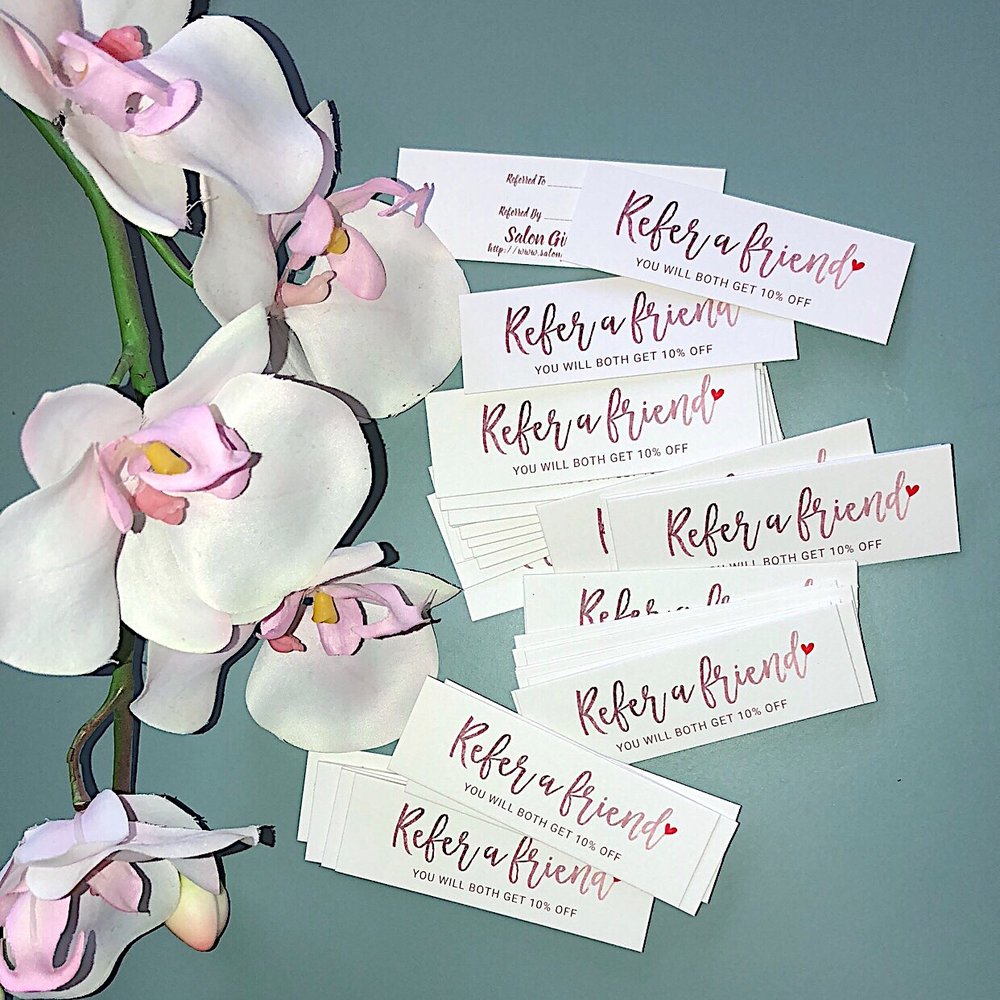 Referred To
Referred By
Salon
http://www.salon
Refer a friend
YOU WILL BOTH GET 10% OFF
Refer a friend
YOU WILL BOTH GET 10% OFF
Refer a friend
YOU WILL BOTH GET 10% OFF
Refer a friend
YOU WILL BOTH GET 10% OFF
Refer a friend
Refer a friend
YOU WILL BOTH GET 10% OFF
Refer a friend
YOU WILL BOTH GET 10% OFF
Refer a friend
YOU WILL BOTH GET 10% OFF